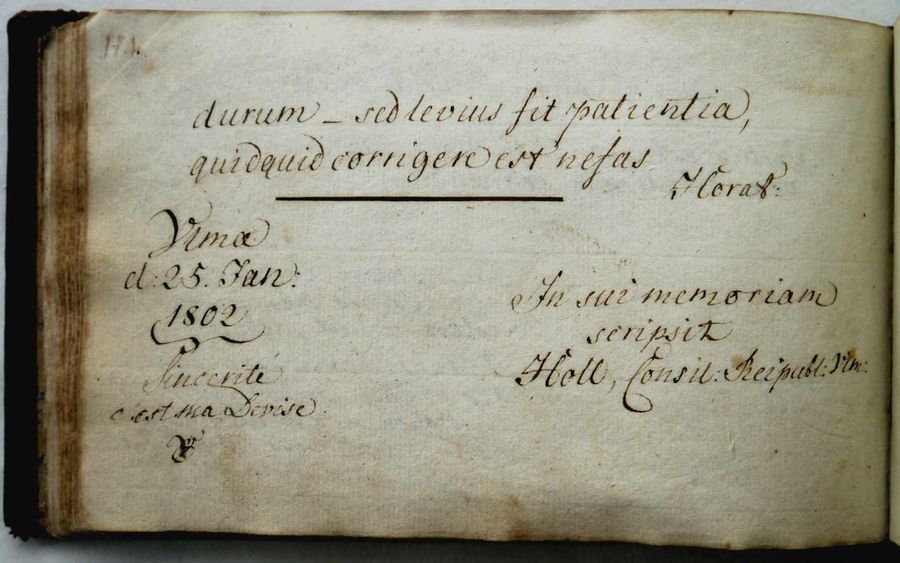 durum – sed levius fit patientia,
quidquid corrigere est nefas
Horat:
Ulmæ
d: 25. Jan:
1802
Sincerité
c'est ma Devise.
In sui memoriam
scripsit
Holl, Consil: Reipubl: Ulm: